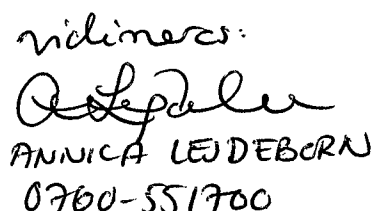 Vidimeras:
ANNICA LEJDEBORN
0760-551700